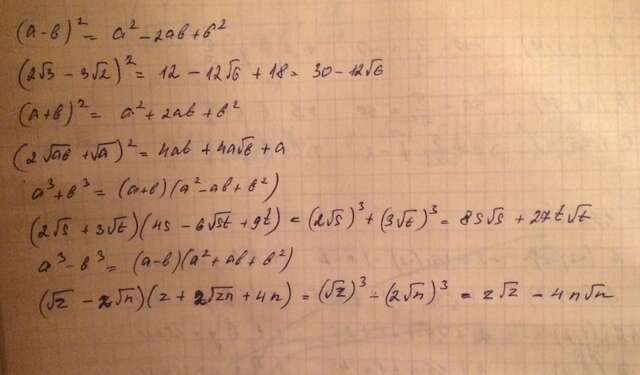 (a-b)² = a² - 2ab + b²
(2√3 - 3√2)² = 12 - 12√6 + 18 = 30 - 12√6
(a+b)² = a² + 2ab + b²
(2√ab + √a)² = 4ab + 4a√b + a
a³+b³ = (a+b)(a² - ab + b²)
(2√s + 3√t)(4s - 6√st + 9t) = (2√s)³ + (3√t)³ = 8s√s + 27t√t
a³-b³ = (a-b)(a² + ab + b²)
(√z - 2√n)(z + 2√zn + 4n) = (√z)³ - (2√n)³ = z√z - 4n√n